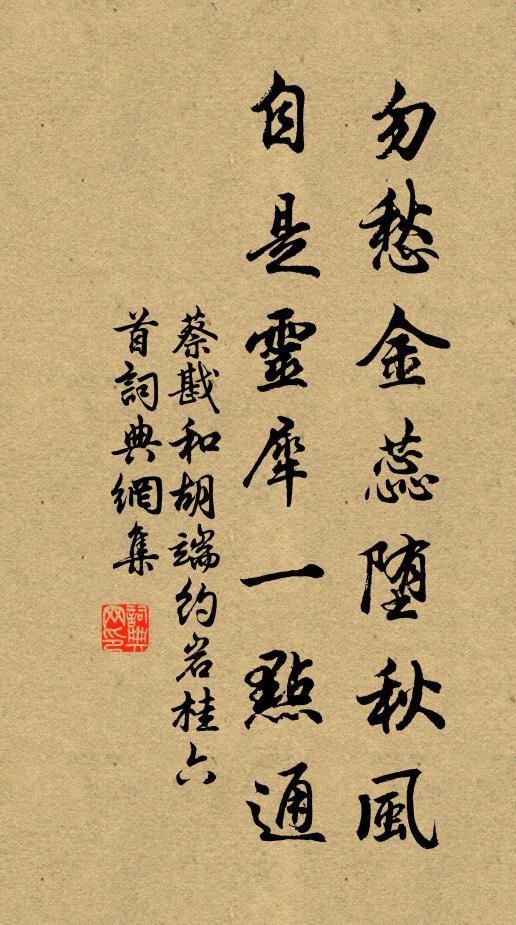 勿愁金蕊堕秋風
自是靈犀一點通
蔡戡和胡端約岩桂六
首詞典網集
詞典網印